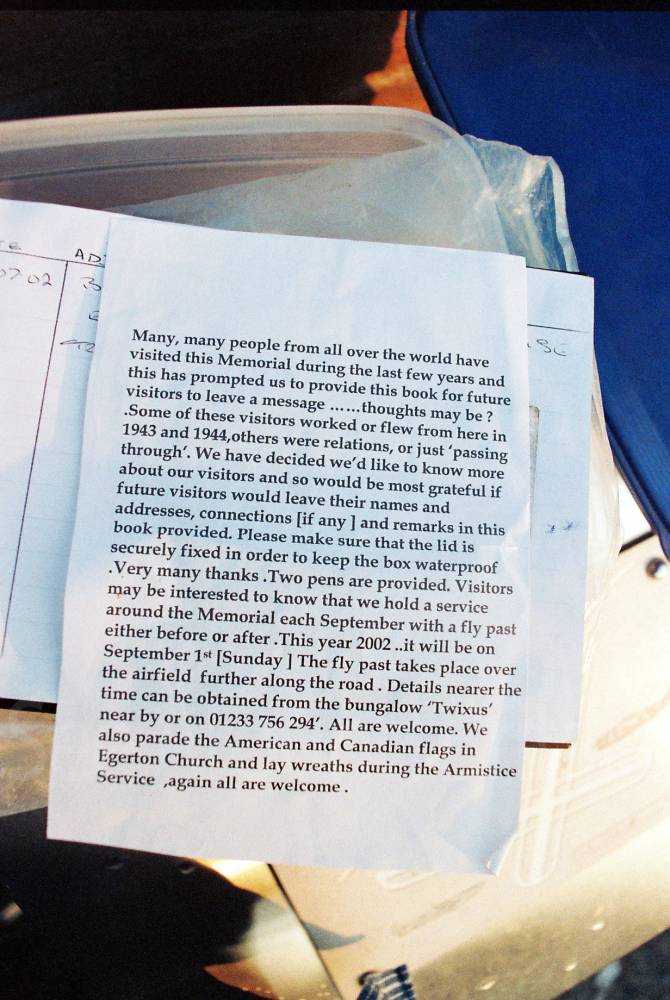 AD
07 02
Many, many people from all over the world have
visited this Memorial during the last few years and
this has prompted us to provide this book for future
visitors to leave a message ......thoughts may be ?
.Some of these visitors worked or flew from here in
1943 and 1944,others were relations, or just 'passing
through'. We have decided we'd like to know more
about our visitors and so would be most grateful if
future visitors would leave their names and
addresses, connections [if any ] and remarks in this
book provided. Please make sure that the lid is
securely fixed in order to keep the box waterproof
.Very many thanks .Two pens are provided. Visitors
may be interested to know that we hold a service
around the Memorial each September with a fly past
either before or after .This year 2002 ..it will be on
September 1st [Sunday ] The fly past takes place over
the airfield further along the road . Details nearer the
time can be obtained from the bungalow 'Twixus'
near by or on 01233 756 294'. All are welcome. We
also parade the American and Canadian flags in
Egerton Church and lay wreaths during the Armistice
Service ,again all are welcome .